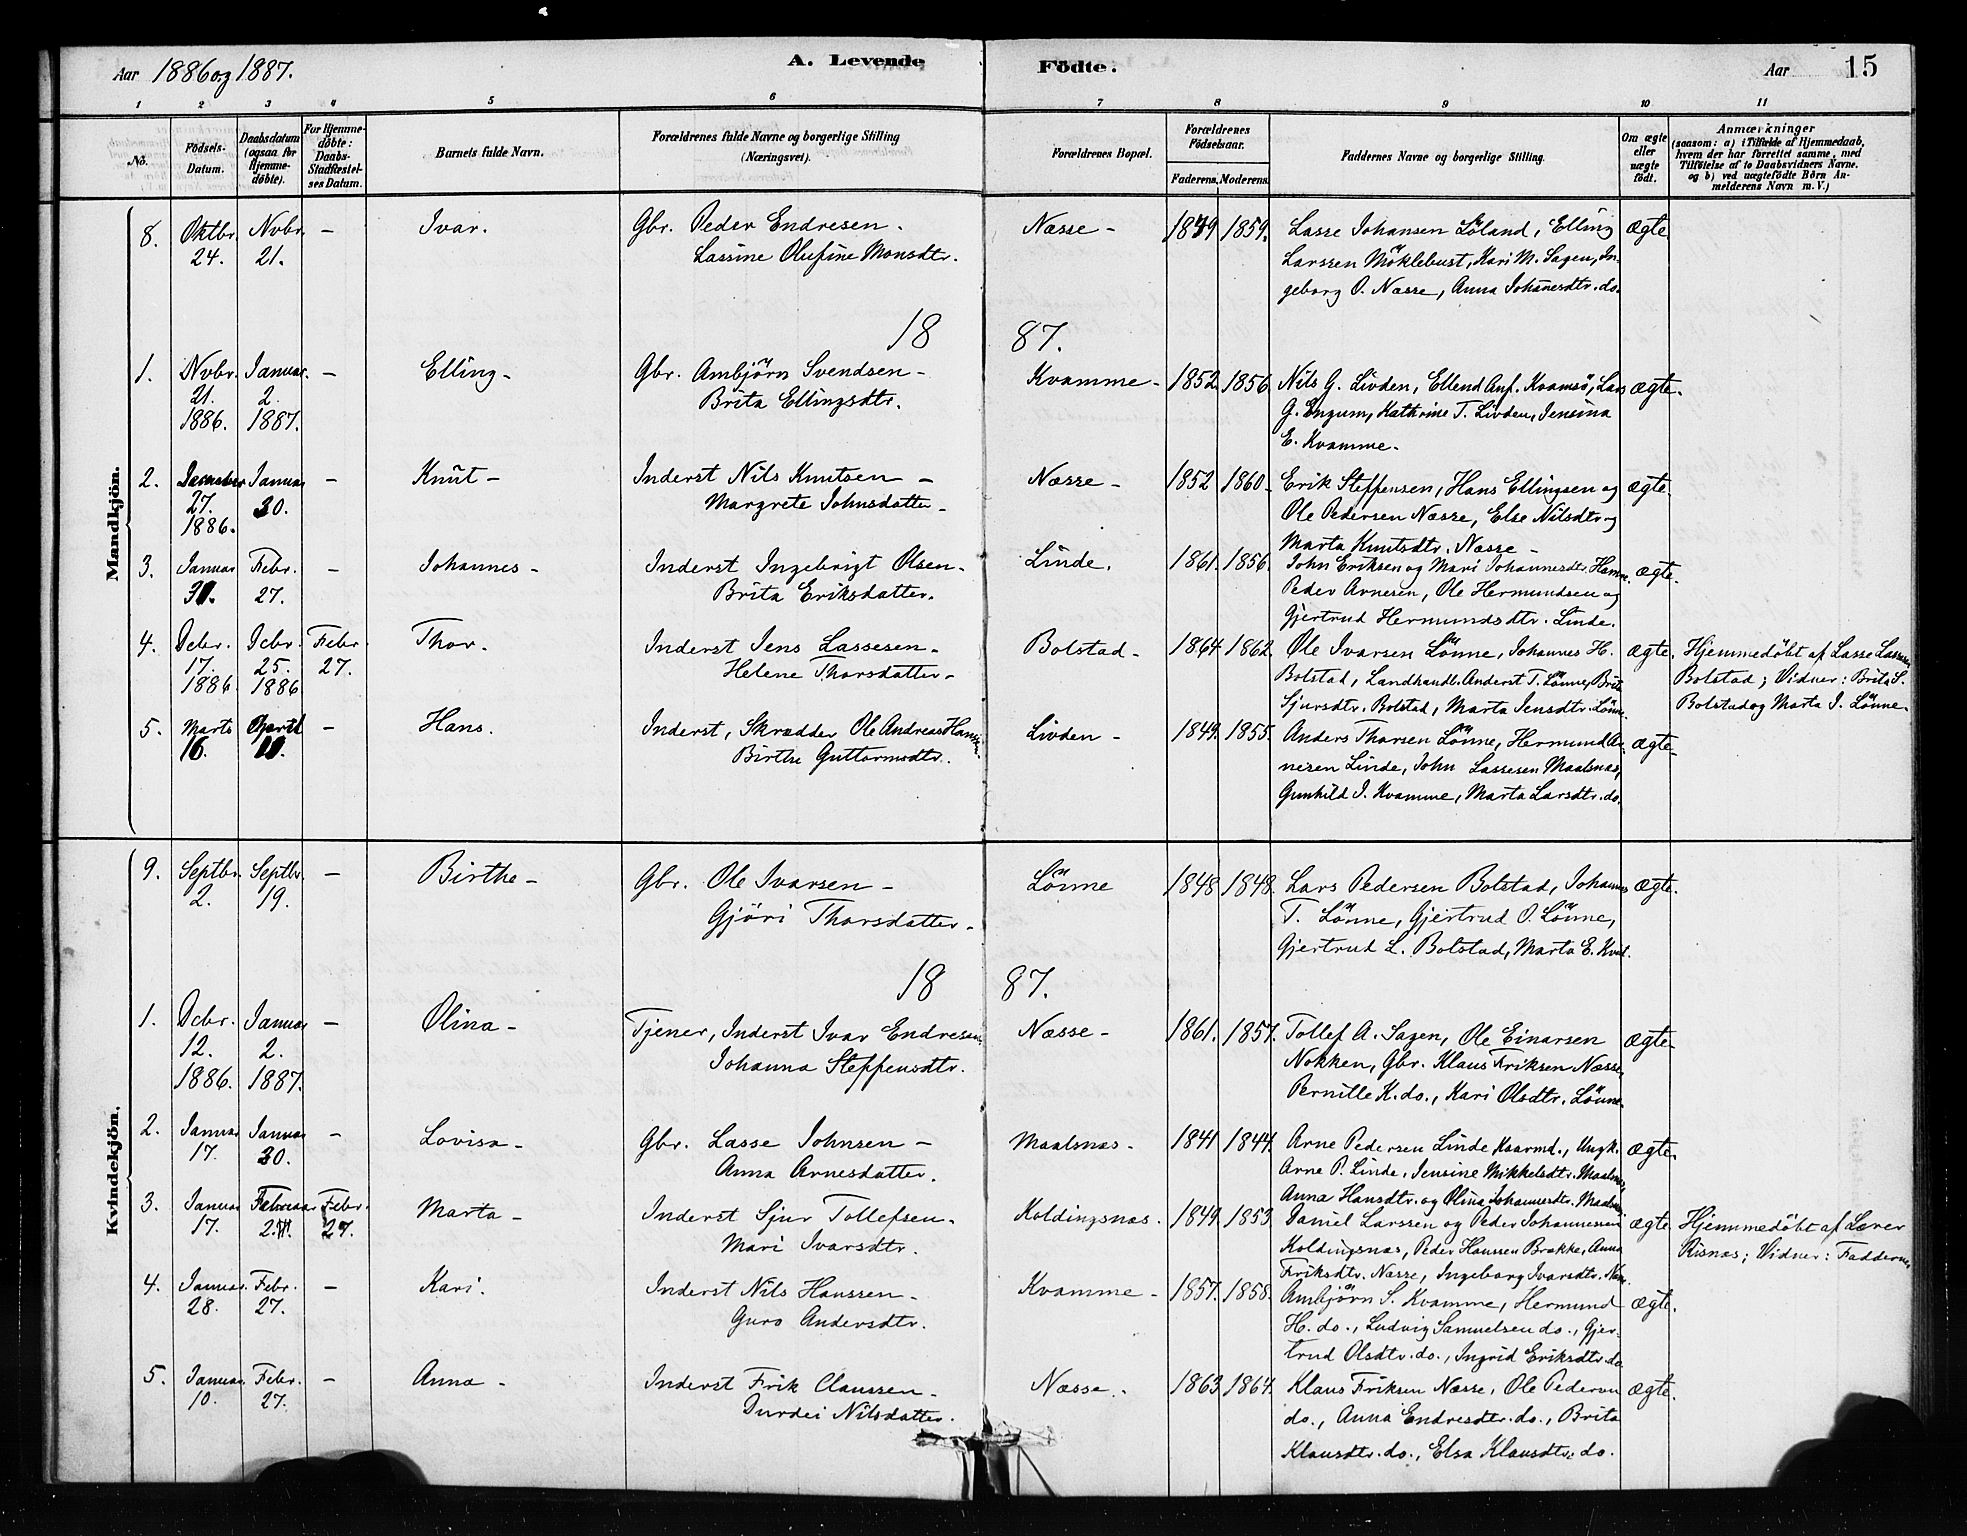 Aar 1886 og 1887. A. Levende Födte. Aar 15
1 2 3 4 5 6 7 8 9 10 11
No. Födsels-Datum. Daabsdatum (ogsaa for Hjemme-döbte). For Hjemme-döbte: Daabs-Stadfæstel-ses Datum. Barnets fulde Navn. Forældrenes fulde Navne og borgerlige Stilling (Næringsvei). Forældrenes Bopæl. Forældrenes Födselsaar. Faderens. Moderens. Faddernes Navne og borgerlige Stilling. Om ægte eller uægte födt. Anmærkninger (saasom: a) i Tilfælde af Hjemmedaab, hvem der har forrettet samme, med Tilföielse af to Daabsvidners Navne. og b) ved uægtefödte Börn An-melderens Navn m. V.)
Mandkjön.
8. Oktbr. Novbr. – Ivar. Gbr. Peder Endresen. Næsse – 1859. Lasse Johansen Löland, Elling ægte
24. 21. Lassine Olufine Monsdtr. Larssen Möklebust, Kari M. Sagen, In-
geborg O. Næsse, Anna Johanesdtr. do.
18 87.
1. Novbr. Januar. – Elling – Gbr. Ambjörn Svendsen – Kvamme – 1852 1856 Nils G. Livden, Ellend Anf. Kvamsö, Lars ægte.
21. 2. Brita Ellingsdtr. G. Engum, Kathrine T. Livden, Jensina
1886. 1887. E. Kvamme.
2. Januar – Knut – Inderst Nils Knutsen – Næsse – 1852 1860 – Erik Steffensen, Hans Ellingsen og ægte.
27. 30. Margrete Johnsdatter – Ole Pedersen Næsse, Else Nilsdtr og
1886. Marta Knutsdtr. Næsse –
3. Januar Febr. – Johannes – Inderst Ingebrigt Olsen – Linde. 1861. 1856. John Eriksen og Mari Johannesdtr. Hamre. ægte.
27. Brita Eriksdatter. Peder Arnesen, Ole Hermundsen og
Gjertrud Hermundsdtr. Linde.
4. Decbr. Decbr. Febr. Thor. Inderst Jens Lassesen – Bolstad – 1864 1862. Ole Ivarsen Lönne, Johannes H. ægte. Hjemmedöbt af Lasse Lassesen
17. 25. 27. Helene Thorsdatter – Bolstad, Landhandl. Anderst T. Lönne, Brita Bolstad; Vidner: Brita S.
1886. 1886 Sjursdtr. Bolstad, Marta Jensdtr. Lönne. Bolstad og Marta J. Lönne.
5. Marts – Hans. Inderst, Skrædder Ole Andreas Hansen. Livden – 1849. 1855. Anders Thorsen Lönne, Hermund Ar- ægte –
16. Birthe Guttormsdtr. nesen Linde, John Lassesen Maalsnæs,
Gunhild I. Kvamme, Marta Larsdtr. do.
Kvindekjön.
9. Septbr. Septbr. – Birthe – Gbr. Ole Ivarsen – Lönne 1848 1848. Lars Pedersen Bolstad, Johannes ægte.
2. 19. Gjöri Thorsdatter – T. Lönne, Gjertrud O. Lönne,
Gjertrud L. Bolstad, Marta E.
18 87.
1. Decbr. Januar – Olina – Tjener, Inderst Ivar Endresen Næsse – 1861. 1857. Tollef A. Sagen, Ole Einarsen ægte –
12. 2. Johanna Steffensdtr. Nokken, Gbr. Klaus Friksen Næsse,
1886. 1887. Pernille K. do., Kari Olsdtr. Lönne.
2. Januar Januar – Lovisa – Gbr. Lasse Johnsen – Maalsnæs – 1841 1844. Arne Pedersen Linde Kaarmd., Ungk. ægte.
17. 30. Anna Arnesdatter. Arne P. Linde, Jensine Mikkelsdtr. Maalsnæs,
Anna Hansdtr. og Olina Johannesdtr. Maalsnæs
3. Januar Februar Febr. Marta – Inderst Sjur Tollefsen – Koldingsnæs. 1849. 1853. Daniel Larssen og Peder Johannesen ægte. Hjemmedöbt af Lærer
17. 27. Mari Ivarsdtr. Koldingsnæs, Peder Hanssen Brække, Anna Risnæs; Vidner: Fadderne,
Friksdtr. Næsse, Ingeborg Ivarsdtr.
4. Januar. Febr. – Kari. Inderst Nils Hanssen – Kvamme – 1857. 1858. Ambjörn S. Kvamme, Hermund ægte.
28. 27. Guro Andersdtr. H. do., Ludvig Samuelsen do., Gjer-
trud Olsdtr. do., Ingrid Eriksdtr. do
5. Januar. Febr. – Anna – Inderst Frik Claussen – Næsse. 1863 1864. Klaus Friksen Næsse, Ole Pedersen ægte.
10. 27. Durdei Nilsdatter. do., Anna Endresdtr. do., Brita
Klausdtr. do., Elsa Klausdtr. do.